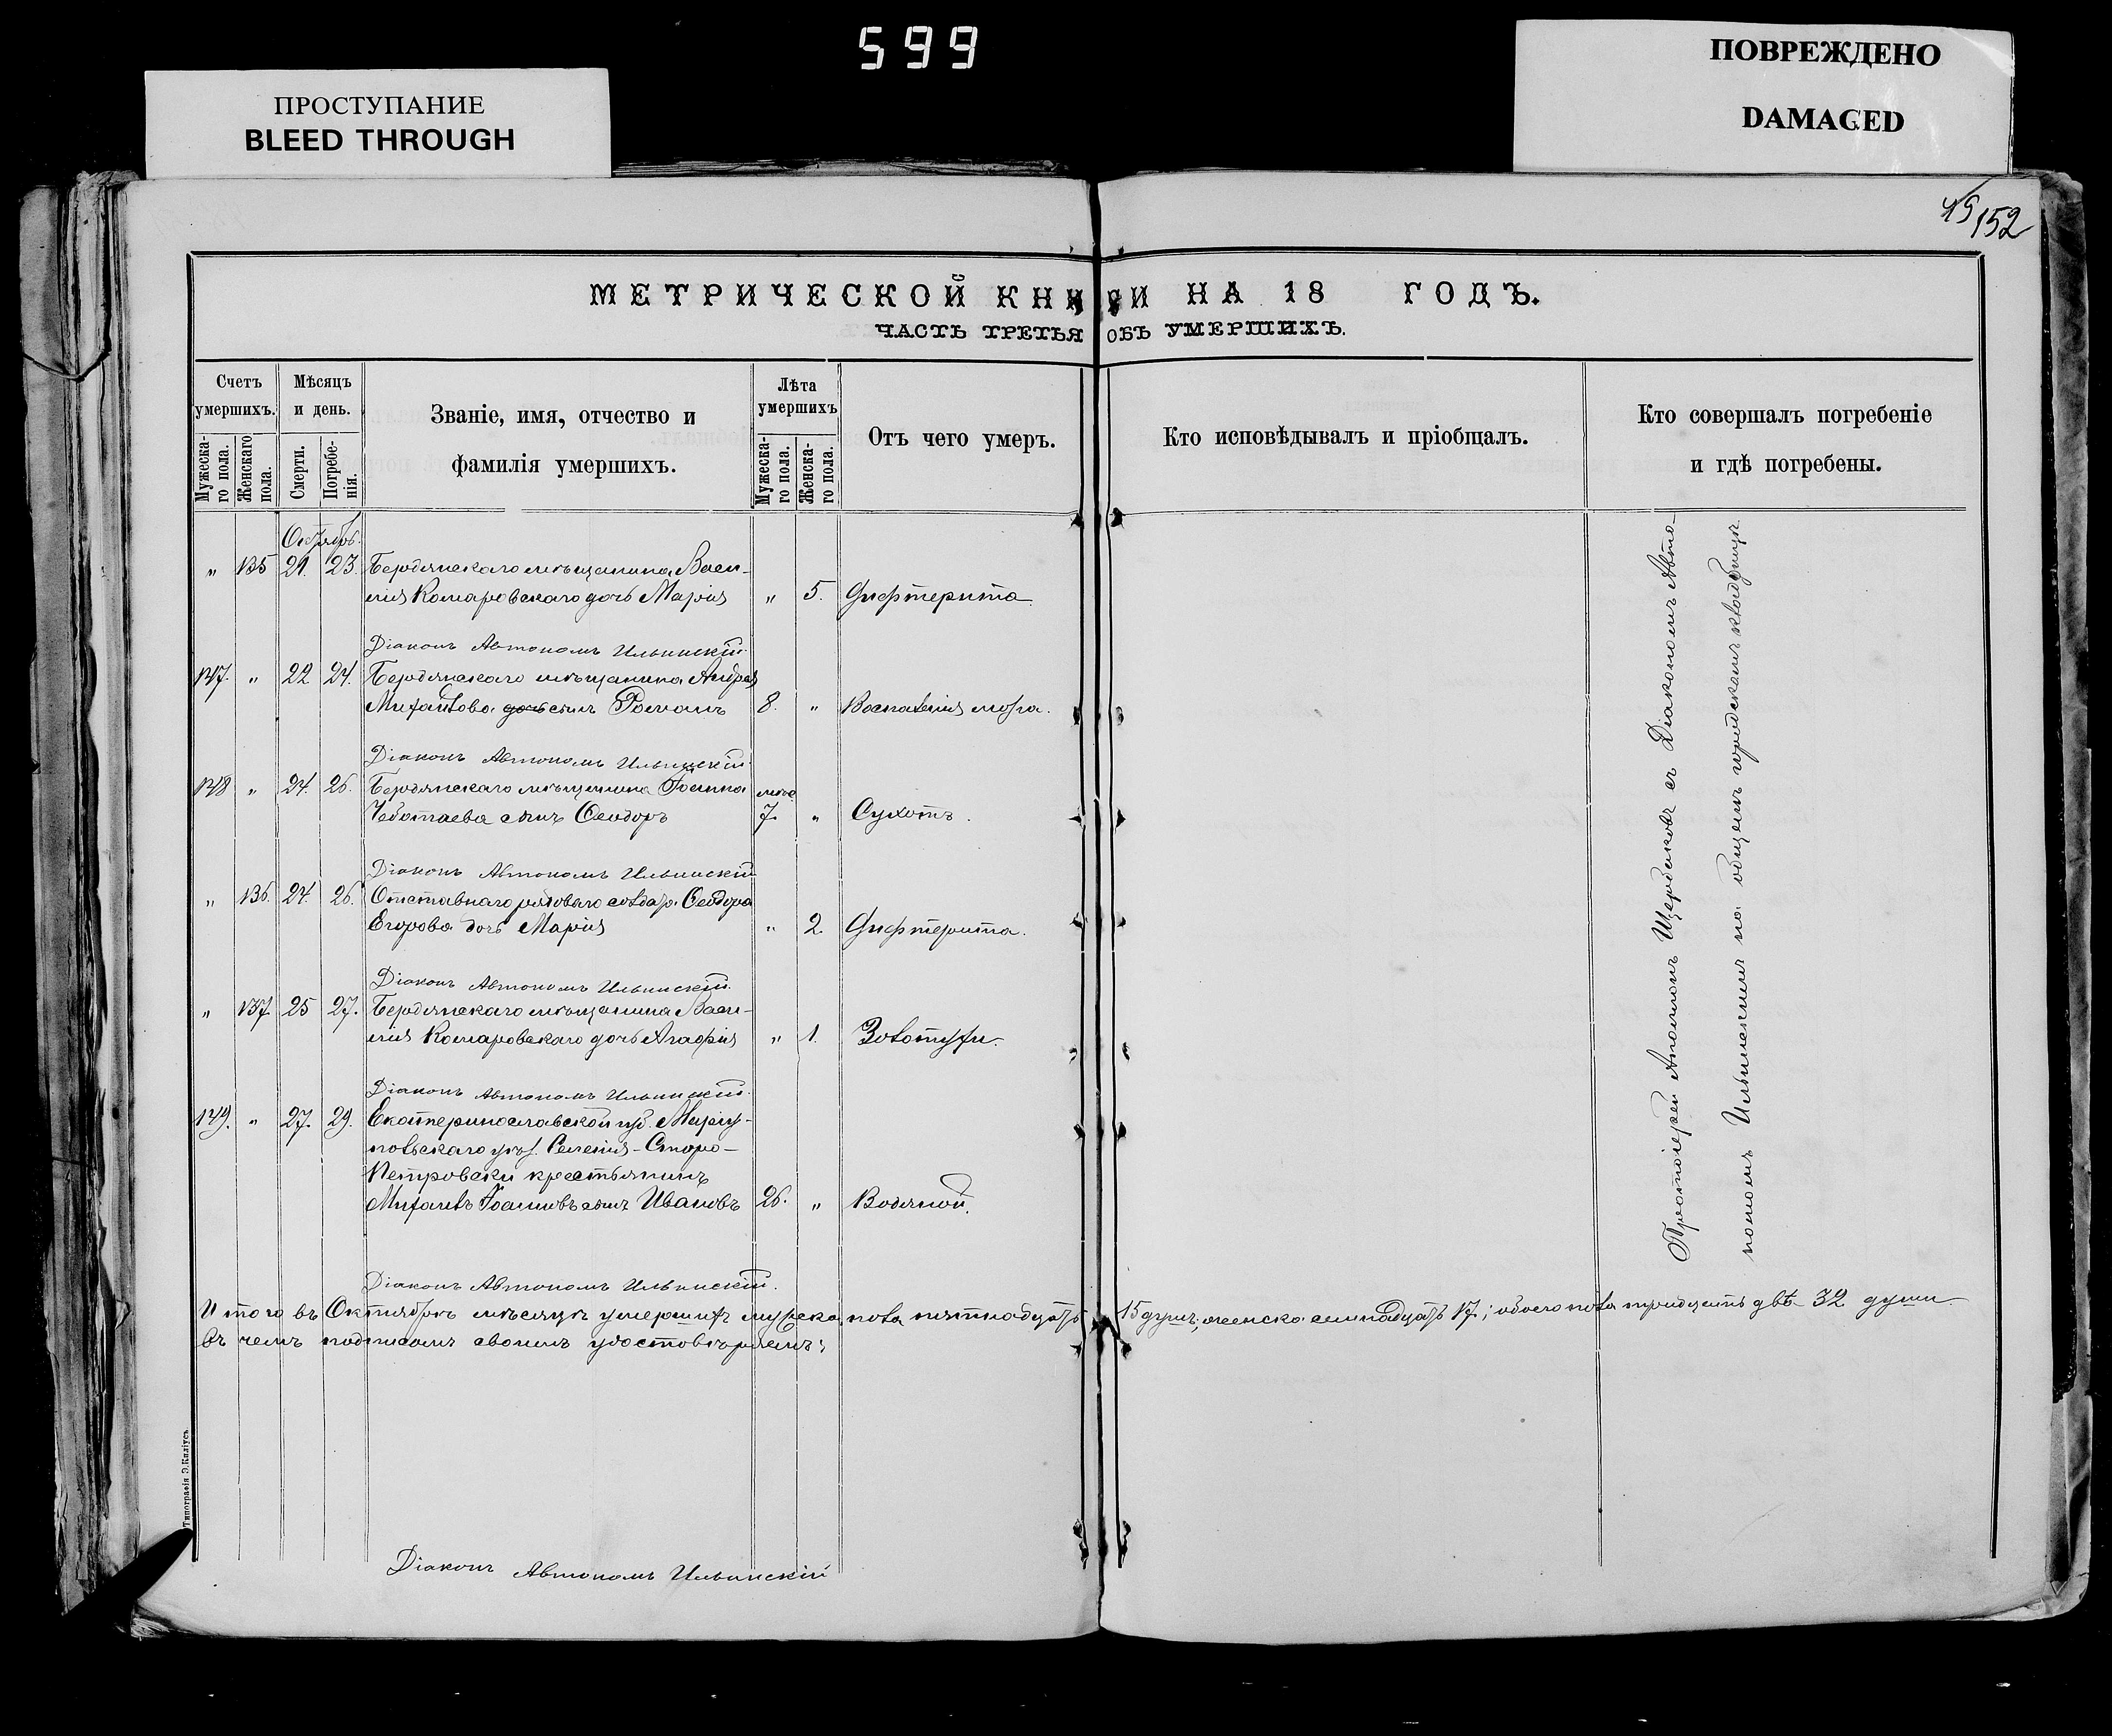 599
ПРОСТУПАНИЕ
BLEED THROUGH
ПОВРЕЖДЕНО
DAMAGED
152
МЕТРИЧЕСКОЙ КНИГИ НА 18 ГОДЪ.
ЧАСТЬ ТРЕТЬЯ ОБЪ УМЕРШИХЪ.
Счетъ умершихъ.
Мужескаго пола.
Женскаго пола.
Мѣсяцъ и день.
Смерти.
Погребенія.
Званіе, имя, отчество и
фамилія умершихъ.
Лѣта умершихъ
Мужескаго пола.
Женскаго пола.
Отъ чего умеръ.
Кто исповѣдывалъ и пріобщалъ.
Кто совершалъ погребеніе
и гдѣ погребены.
Октябрь.
„ 135 21. 23. Бердянскаго мѣщанина Васи-
лія Комаровскаго дочь Марія „ 5. Дифтерита.
Діаконъ Автономъ Ильинскій.
147. „ 22 24. Бердянскаго мѣщанина Андрея
Михайлова дочь сынъ Романъ 8. „ Воспаленія мозга.
Діаконъ Автономъ Ильинскій.
148 „ 24. 26. Бердянскаго мѣщанина Іоанна
сынъ Ѳеодоръ 7. „ Сухотъ.
Діаконъ Автономъ Ильинскій
„ 136. 24. 26. Отставнаго рядоваго Ѳеодора
Егорова дочь Марія „ 2. Дифтерита.
Діаконъ Автономъ Ильинскій.
„ 137 25 27. Бердянскаго мѣщанина Васи-
лія Комаровскаго дочь Агафія „ 1. Золотухи.
Діаконъ Автономъ Ильинскій.
149. „ 27. 29. Екатеринославской губ. Маріу-
польскаго уѣз. Селенія-Старо-
Петровски крестьянинъ
Михаилъ Іоанновъ сынъ Ивановъ 26. „ Водяной.
Діаконъ Автономъ Ильинскій.
Протоіерей Щербаковъ съ Діакономъ Авто-
номомъ Ильинскимъ на общемъ городскомъ кладбищѣ.
Итого въ Октябрѣ мѣсяцѣ умершихъ мужеска пола пятнадцать 15 душъ; женска семнадцать 17; обоего пола тридцать двѣ 32 души
въ чемъ подписомъ своимъ удостовѣряемъ:
Діаконъ Автономъ Ильинскій
Типографія Э. Килiусъ